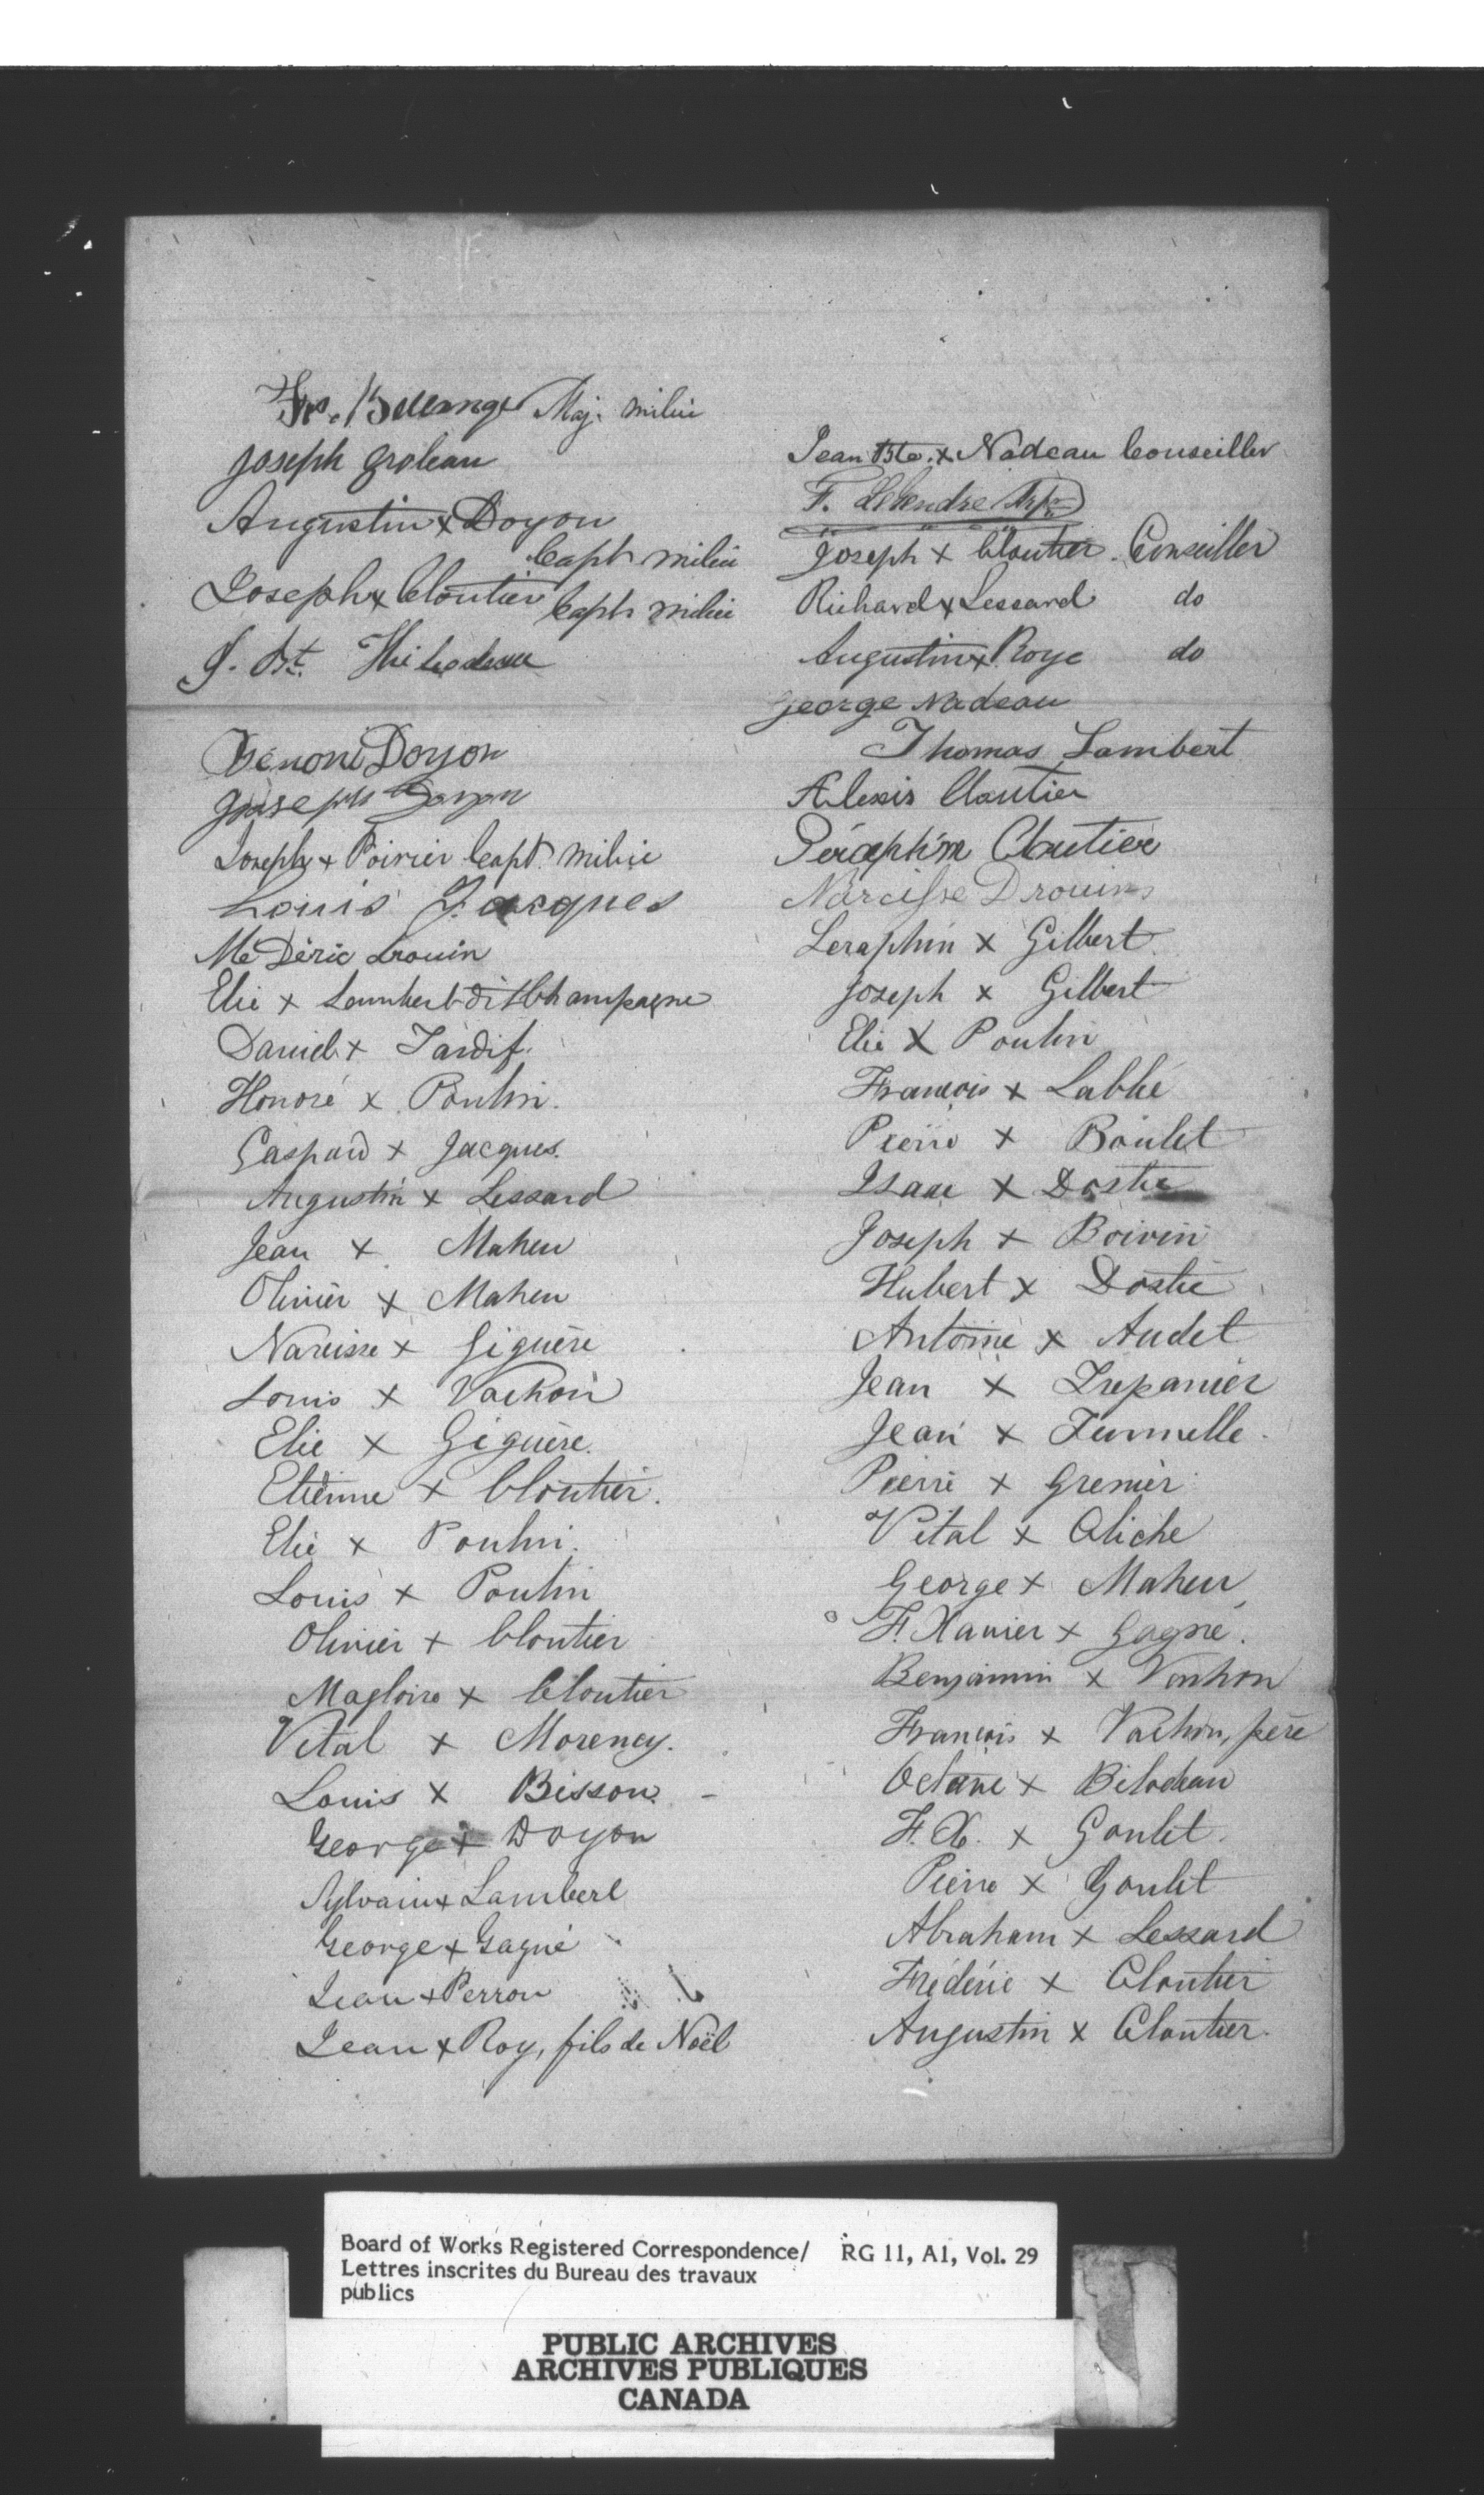 Frs. Bellanger Maj. milice
Joseph Groleau
Augustin x Doyon
Capt milice
Joseph x Cloutier Capt milice
J. Bt. Thibodeau
Bénoni Doyon
Joseph Doyon
Joseph x Poirier Capt. milice
Louis Jacques
Médéric Drouin
Elie x Lambert dit Champagne
Daniel x Tardif.
Honoré x Poulin.
Gaspard x Jacques.
Augustin x Lessard
Jean x Maheu
Olivier x Maheu
Narcisse x Giguère
Louis x Vachon
Elie x Giguère.
Etienne x Cloutier.
Elie x Poulin.
Louis x Poulin
Olivier x Cloutier
Magloire x Cloutier
Vital x Morency.
Louis x Bisson.
George x Doyon
Sylvain x Lambert
George x Gagné
Jean x Perron
Jean x Roy, fils de Noël
Jean Bte. x Nadeau Conseiller
F. Letendre Arp.
Joseph x Cloutier. Conseiller
Richard x Lessard do
Augustin x Roye do
George Nadeau
Thomas Lambert
Alexis Cloutier
Séraphim Cloutier
Narcisse Drouin
Seraphin x Gilbert.
Joseph x Gilbert
Elie x Poulin
François x Labbé
Pierre x Boulet
Isaac x Dostie
Joseph x Boivin
Hubert x Dostie
Antoine x Audet
Jean x Trepanier
Jean x Fermelle.
Pierre x Grenier
Vital x Cliche
George x Maheu
F. Xavier x Gagné.
Benjamin x Vachon
François x Vachon, père
Octave x Bilodeau
F. X. x Goulet.
Pierre x Goulet
Abraham x Lessard
Frédéric x Cloutier
Augustin x Cloutier.
Board of Works Registered Correspondence/ RG 11, A1, Vol. 29
Lettres inscrites du Bureau des travaux
publics
PUBLIC ARCHIVES
ARCHIVES PUBLIQUES
CANADA